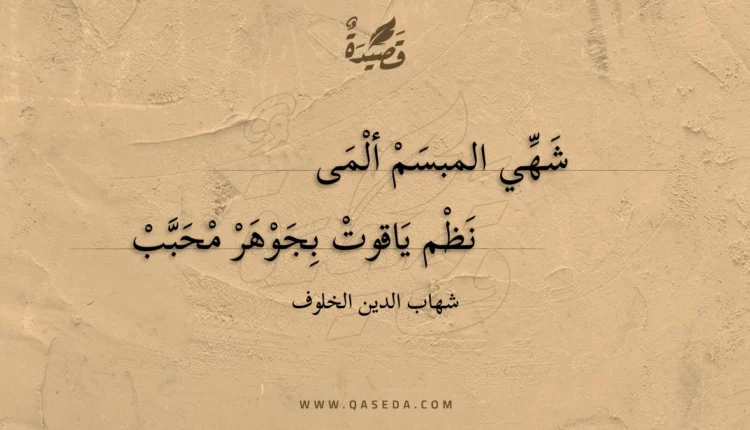 قَصِيْدَةٌ
شَهِّي المبسَمْ ألْمَى
نَظْم يَاقوتْ بِجَوْهَرْ مْحَبَّبْ
شهاب الدين الخلوف
WWW.QASEDA.COM